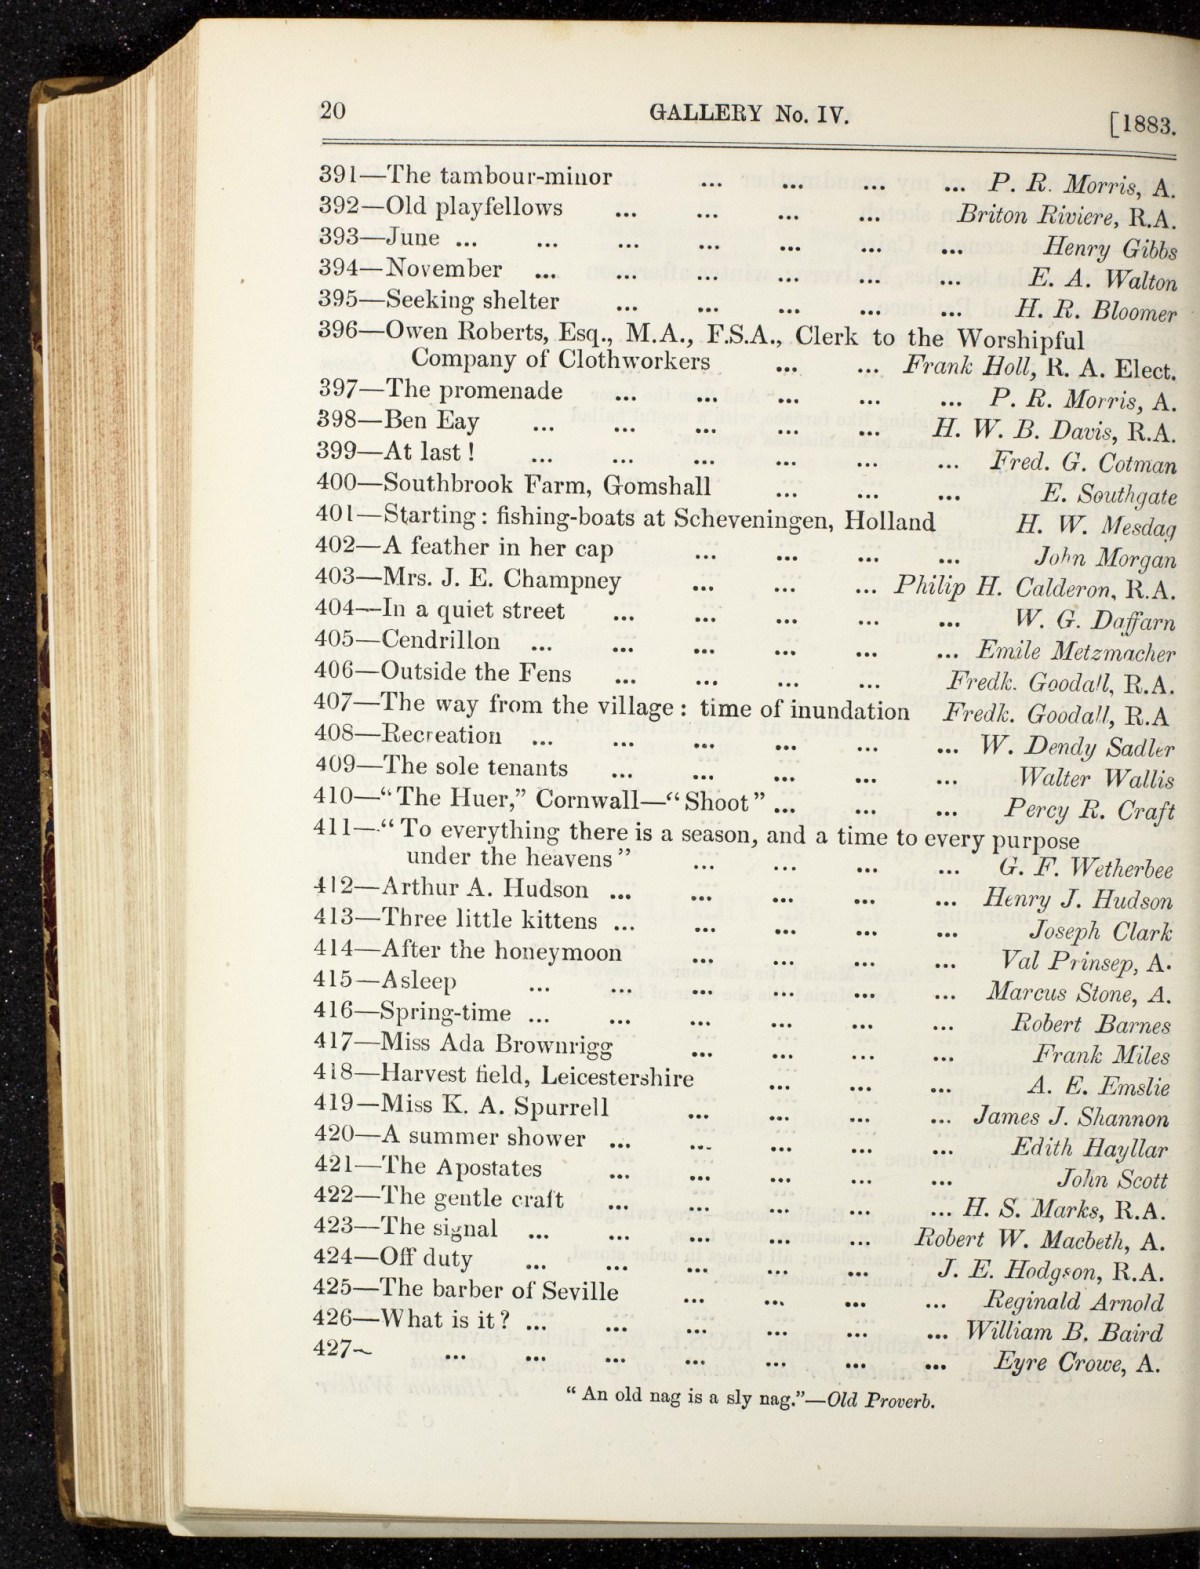 20 GALLERY No. IV. [1883.
391—The tambour-minor ... ... ... ... P. R. Morris, A.
392—Old playfellows ... ... ... ... Briton Riviere, R.A.
393—June ... ... ... ... ... ... ... Henry Gibbs
394—November ... ... ... ... ... ... E. A. Walton
395—Seeking shelter ... ... ... ... ... H. R. Bloomer
396—Owen Roberts, Esq., M.A., F.S.A., Clerk to the Worshipful
Company of Clothworkers ... ... Frank Holl, R. A. Elect.
397—The promenade ... ... ... ... ... P. R. Morris, A.
398—Ben Eay ... ... ... ... ... H. W. B. Davis, R.A.
399—At last! ... ... ... ... ... ... Fred. G. Cotman
400—Southbrook Farm, Gomshall ... ... ... E. Southgate
401—Starting: fishing-boats at Scheveningen, Holland H. W. Mesdag
402—A feather in her cap ... ... ... ... John Morgan
403—Mrs. J. E. Champney ... ... ... Philip H. Calderon, R.A.
404—In a quiet street ... ... ... ... ... W. G. Daffarn
405—Cendrillon ... ... ... ... ... ... Emile Metzmacher
406—Outside the Fens ... ... ... ... Fredk. Goodall, R.A.
407—The way from the village: time of inundation Fredk. Goodall, R.A
408—Recreation ... ... ... ... ... ... W. Dendy Sadler
409—The sole tenants ... ... ... ... ... Walter Wallis
410—“The Huer,” Cornwall—“Shoot” ... ... ... Percy R. Craft
411—“To everything there is a season, and a time to every purpose
under the heavens” ... ... ... ... G. F. Wetherbee
412—Arthur A. Hudson ... ... ... ... ... Henry J. Hudson
413—Three little kittens ... ... ... ... ... Joseph Clark
414—After the honeymoon ... ... ... ... Val Prinsep, A.
415—Asleep ... ... ... ... ... ... Marcus Stone, A.
416—Spring-time ... ... ... ... ... ... Robert Barnes
417—Miss Ada Brownrigg ... ... ... ... Frank Miles
418—Harvest field, Leicestershire ... ... ... A. E. Emslie
419—Miss K. A. Spurrell ... ... ... ... James J. Shannon
420—A summer shower ... ... ... ... ... Edith Hayllar
421—The Apostates ... ... ... ... ... John Scott
422—The gentle craft ... ... ... ... ... H. S. Marks, R.A.
423—The signal ... ... ... ... ... Robert W. Macbeth, A.
424—Off duty ... ... ... ... ... J. E. Hodgson, R.A.
425—The barber of Seville ... ... ... ... Reginald Arnold
426—What is it? ... ... ... ... ... ... William B. Baird
427— ... ... ... ... ... ... ... Eyre Crowe, A.
“An old nag is a sly nag.”—Old Proverb.